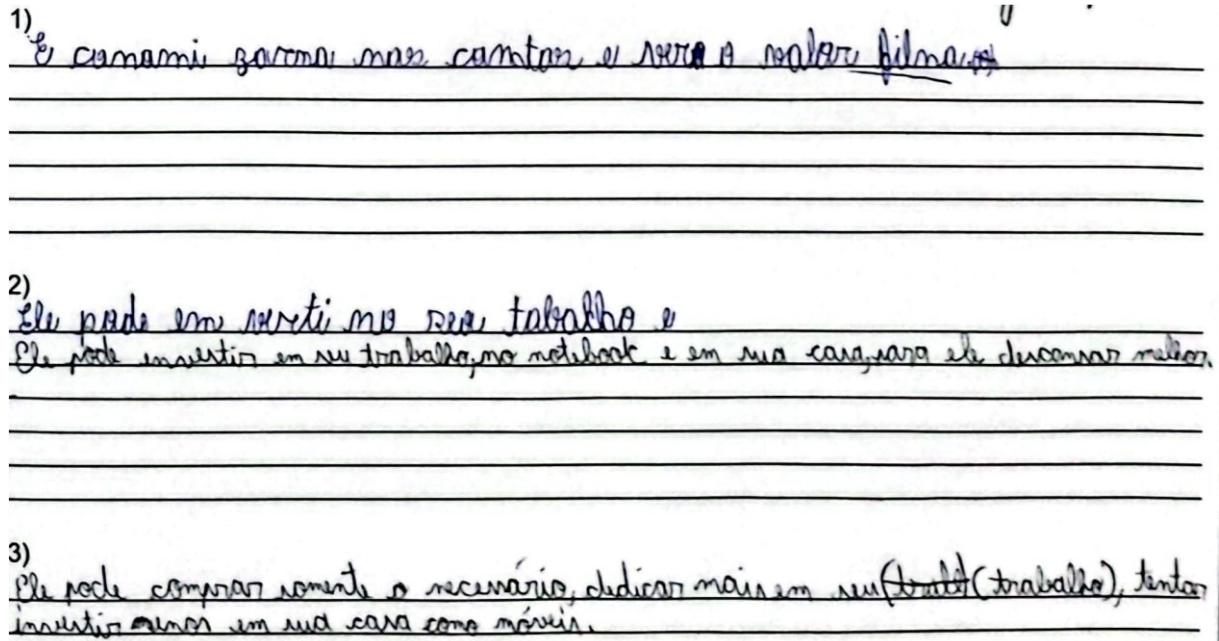 1)
E conami zarma nas contas e vero o valor filnal
2)
Ele pode em verti no seu tabalho e
Ele pode investir em seu trabalho, no notebook e em sua casa, para ele descansar melhor.
3)
Ele pode comprar somente o necessário, dedicar mais em seu (trabalho), tentar
investir menos em sua casa como móveis.